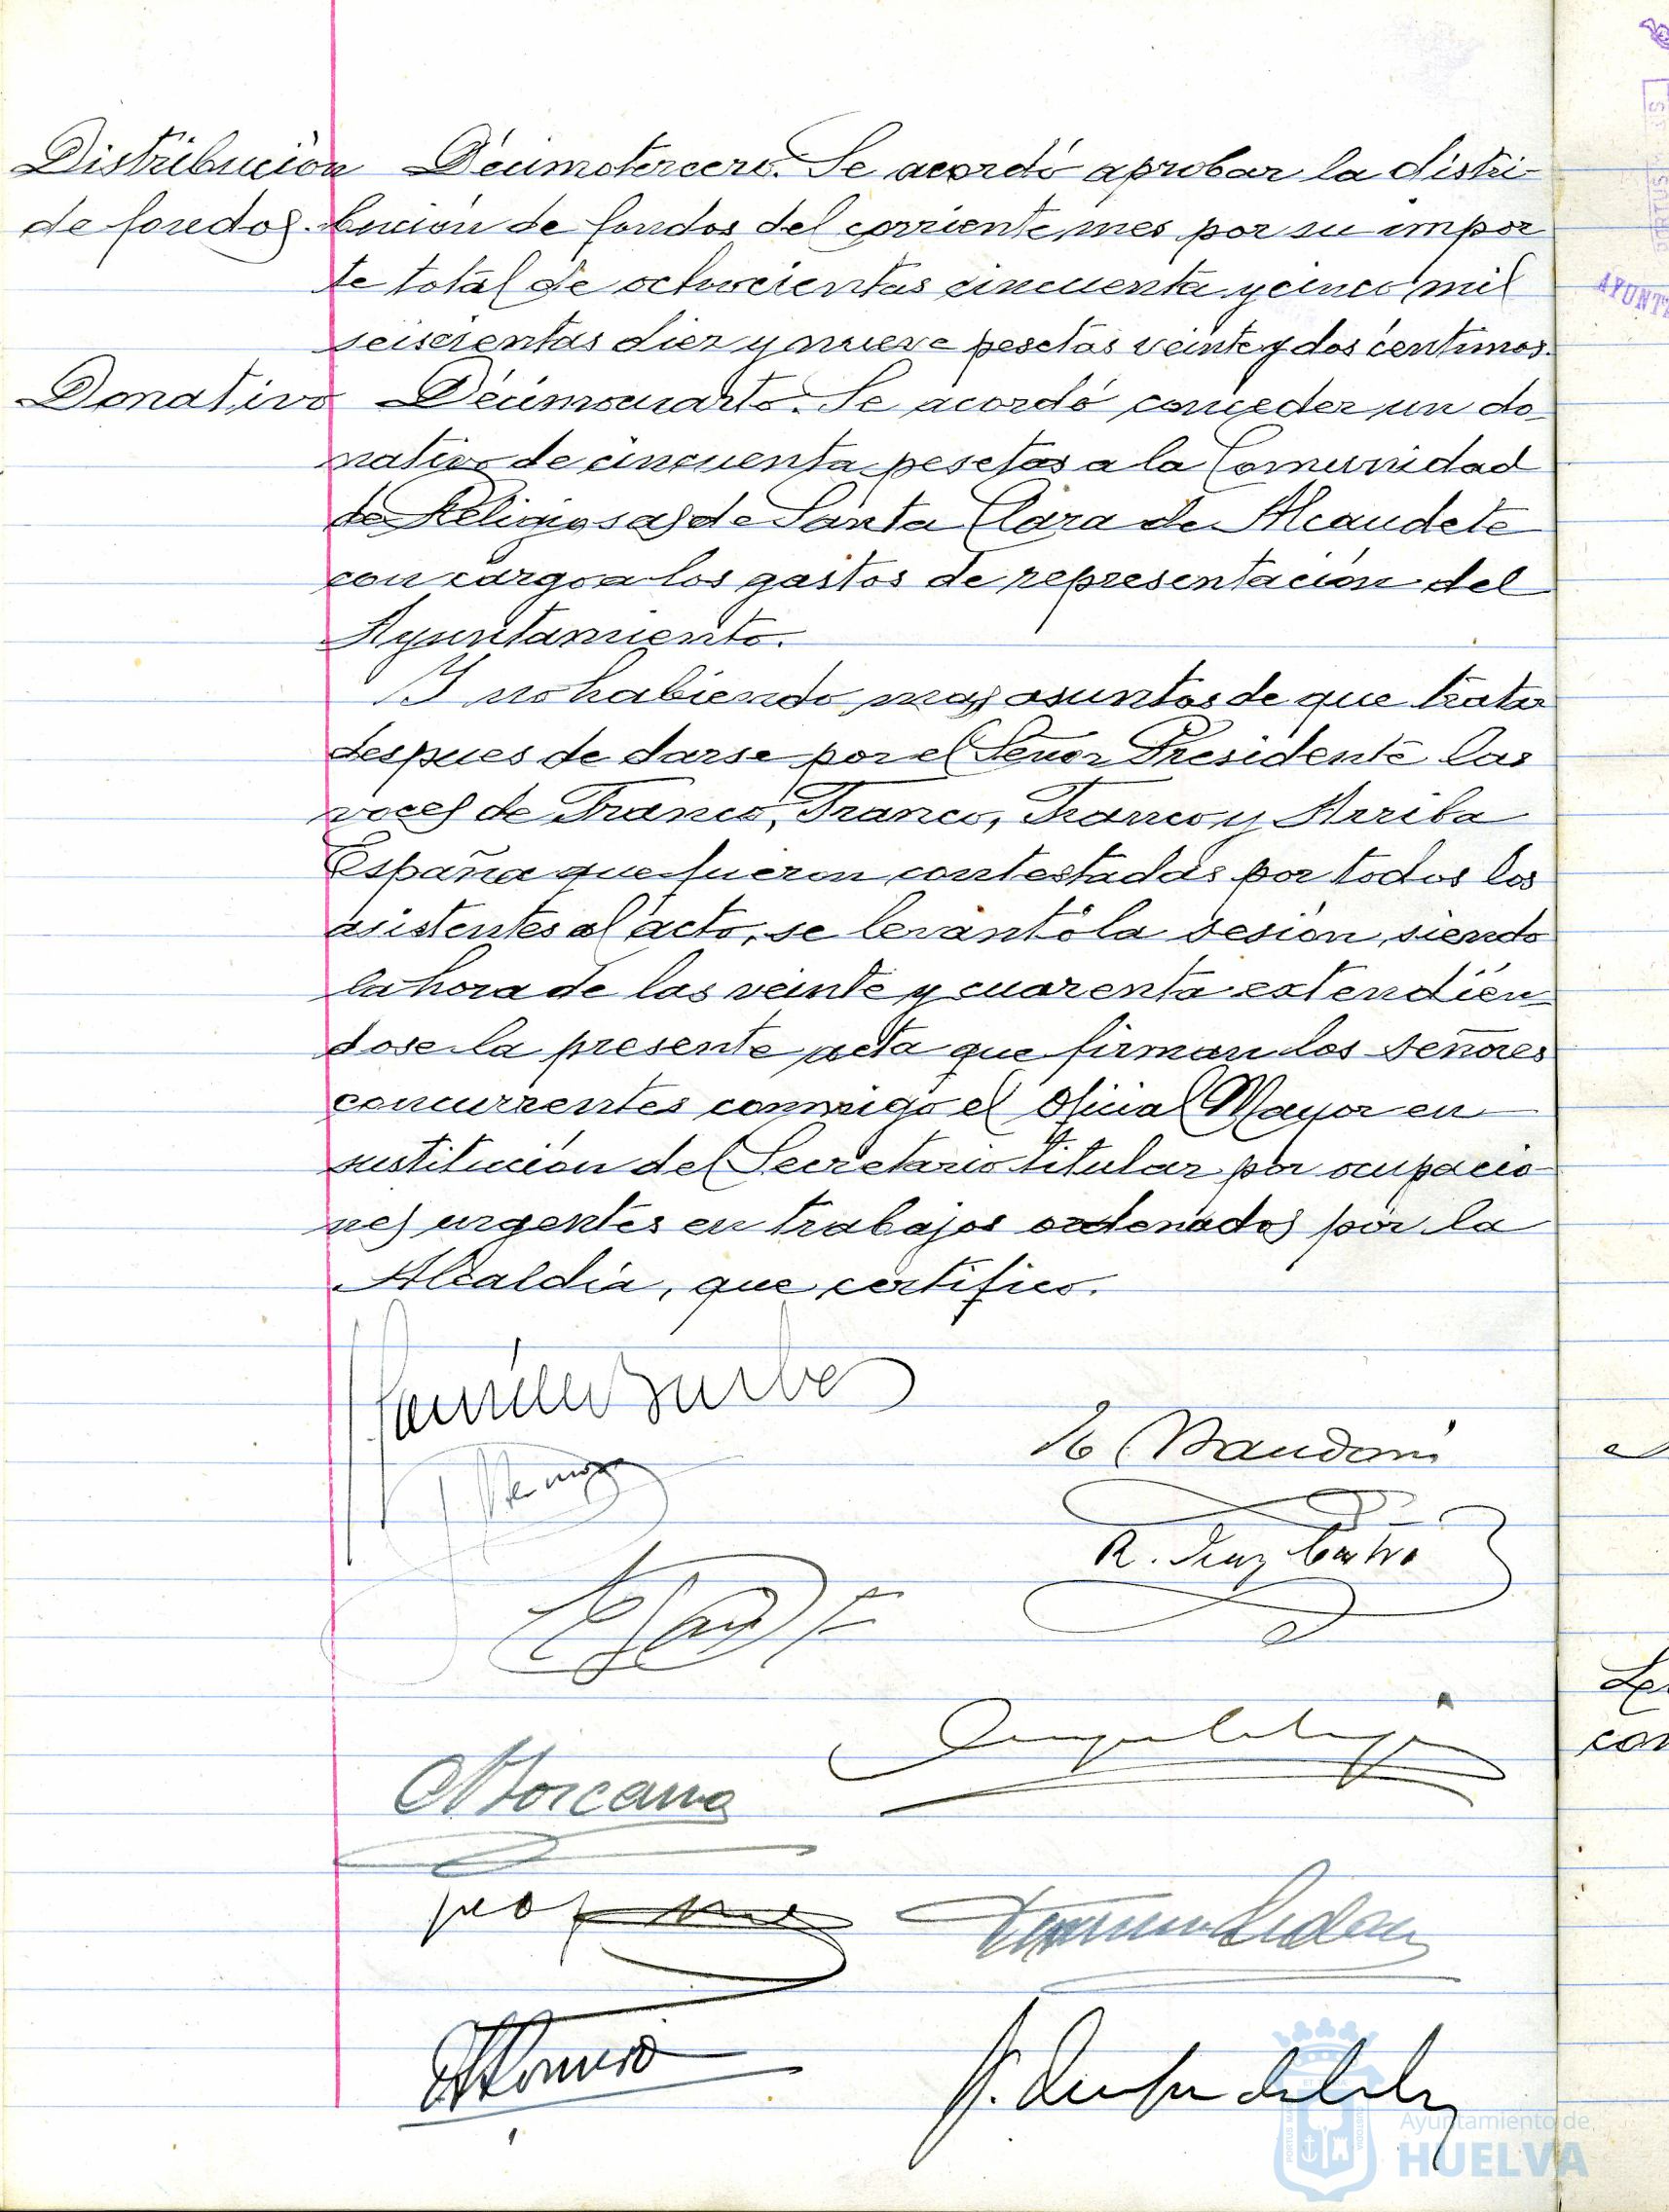 Distribución
de fondos.
Décimotercero. Se acordó aprobar la distri-
bución de fondos del corriente mes por su impor
te total de octocientas cincuenta y cinco mil
seiscientas diez y nueve pesetas veinte y dos céntimos.
Donativo
Décimocuarto. Se acordó conceder un do-
nativo de cincuenta pesetas a la Comunidad
de Religiosas de Santa Clara de Alcaudete
con cargo a los gastos de representación del
Ayuntamiento.
Y no habiendo mas asuntos de que tratar
despues de darse por el Señor Presidente las
voces de Franco, Franco, Franco y Arriba
España que fueron contestadas por todos los
asistentes al acto, se levantó la sesión, siendo
la hora de las veinte y cuarenta extendién-
dose la presente acta que firman los señores
concurrentes conmigo el Oficial Mayor en
sustitución del Secretario titular por ocupacio-
nes urgentes en trabajos ordenados por la
Alcaldía, que certifico.
R. Diaz Castro
AYUNTA
con
Ayuntamiento de
HUELVA